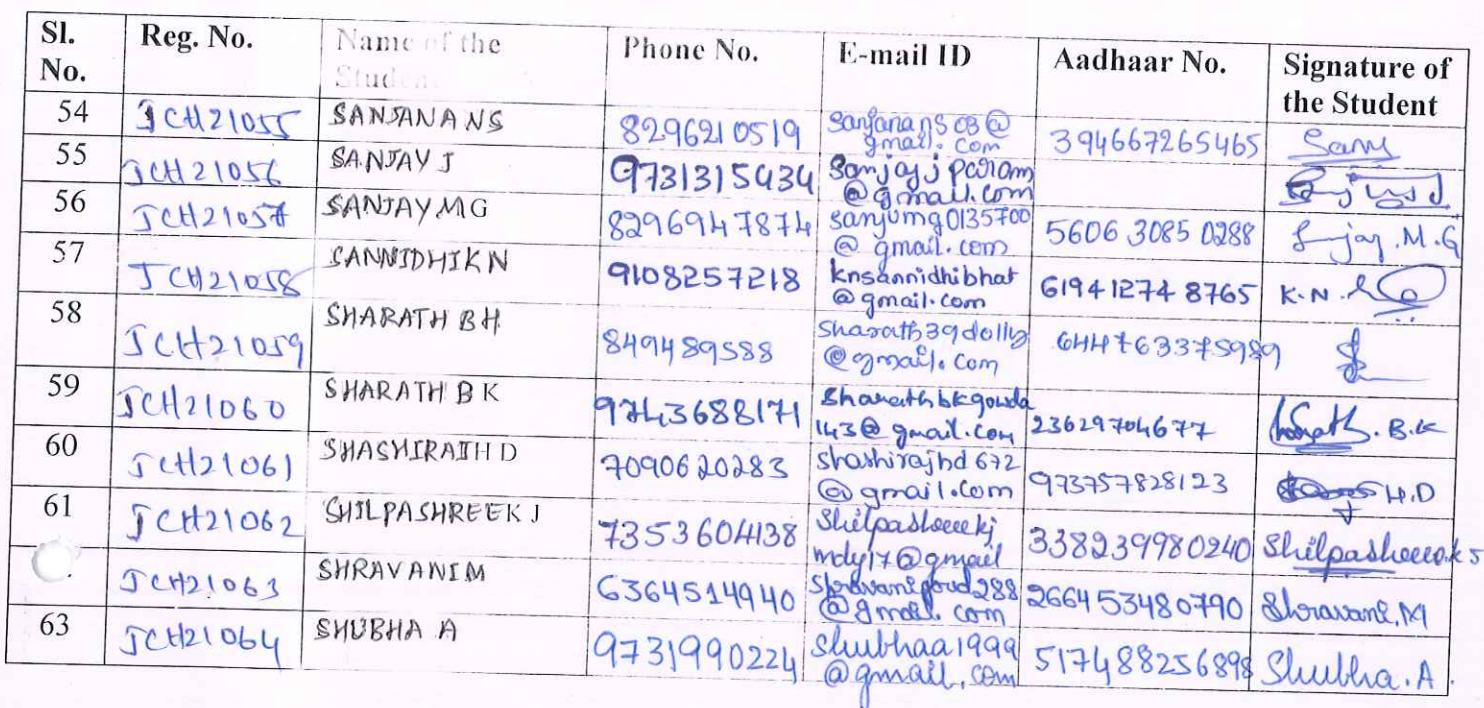 Sl. No. Reg. No. Name of the Student Phone No. E-mail ID Aadhaar No. Signature of the Student
54 JCH21055 SANJANA NS 8296210519 sanjanans03@gmail.com 394667265465 Sanj
55 JCH21056 SANJAY J 9731315434 sanjayjparam@gmail.com
56 JCH21057 SANJAY MG 8296947874 sanjumg0135700@gmail.com 5606 3085 0288 Sanjay.M.G
57 JCH21058 SANNIDHI K N 9108257218 knsannidhibhat@gmail.com 61941274 8765 K.N.
58 JCH21059 SHARATH BH 849489588 sharath39dolly@gmail.com 644763375989
59 JCH21060 SHARATH B K 9743688171 sharathbkgowda143@gmail.com 23629704677 B.K
60 JCH21061 SHASHIRAJ H D 7090620283 shashirajhd672@gmail.com 973757828123 H.D
61 JCH21062 SHILPASHREE K J 7353604138 shilpashreekjmdy17@gmail 338239980240 Shilpashree.k J
JCH21063 SHRAVANI M 6364514940 shravanigowd288@gmail.com 2664 53480790 Shravani.M
63 JCH21064 SHUBHA A 9731990224 shubhaa1999@gmail.com 517488256898 Shubha.A.